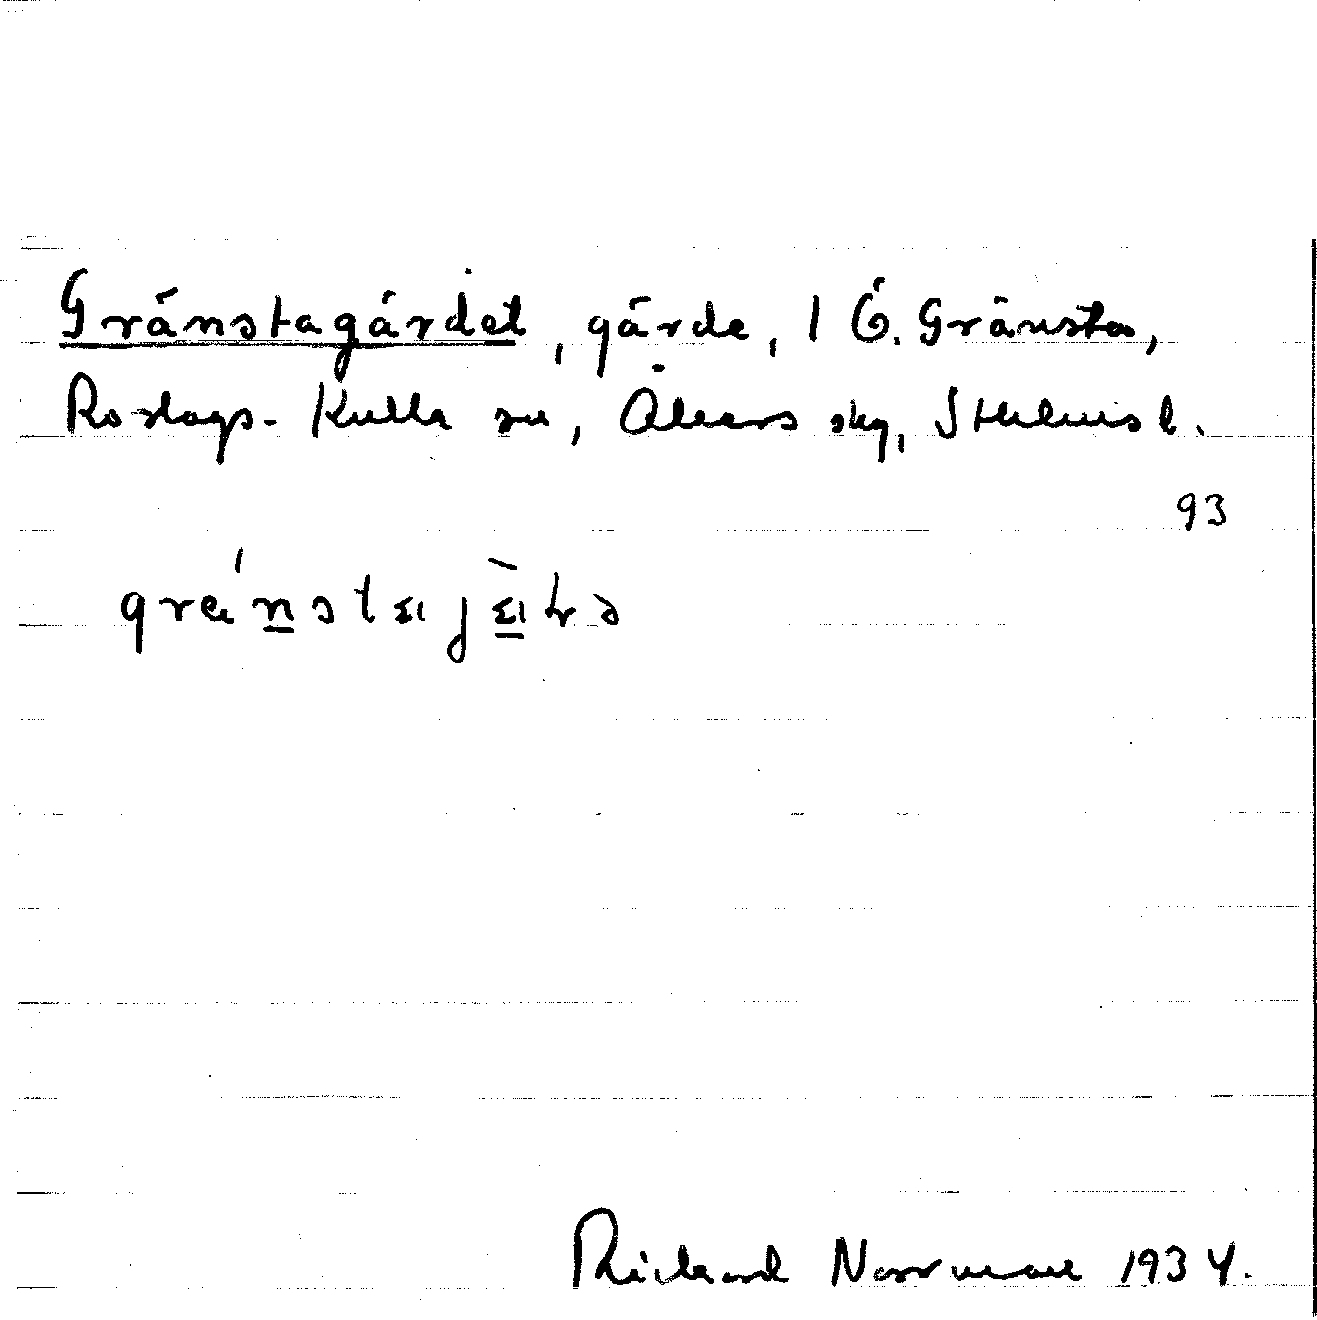 Gränstagärdet, gärde, 1 Ö. Gränsta,
Roslags-Kulla sn, Åkers skg, Sthlms l.
93
Rickard Norrman 1934.